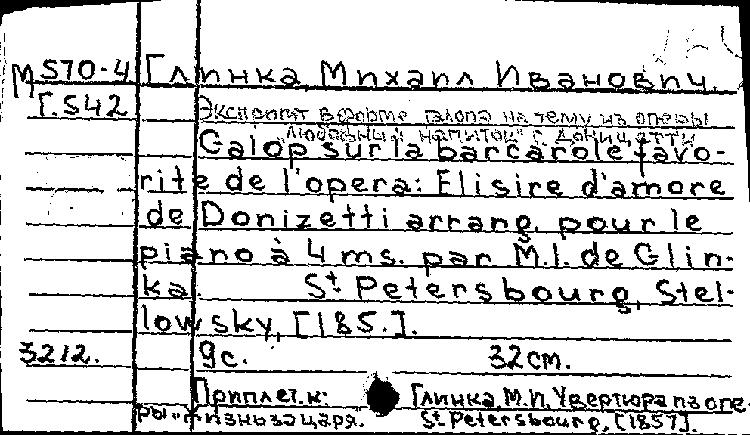 М 570-4 Глинка, Михаил Иванович.
Г.542
Экспромт в форме галопа на тему из оперы
„Любовный напиток" Г. Доницетти
Galop sur la barcarole favo-
rite de l'opera: Elisire d'amore
de Donizetti arrang. pour le
piano à 4 ms. par M.I. de Glin-
ka. St Petersbourg, Stel-
lowsky, [185.].
3212. 9с. 32см.
Приплет. к: Глинка, М.И. Увертюра из опе-
ры „Жизнь за царя. St. Petersbourg, [1857].